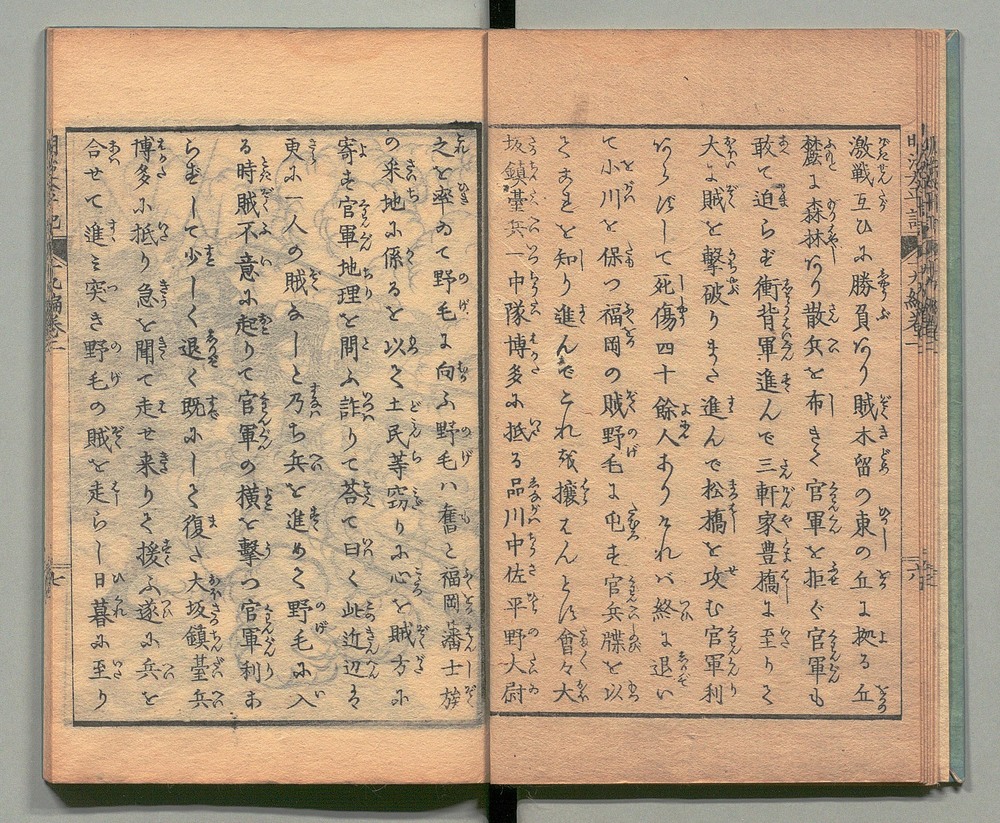 激戦互ひに勝負あり賊木留の東の丘に拠る丘
麓に森林あり散兵を布きて官軍を拒ぐ官軍も
敢て迫らず衝背軍進んで三軒家豊橋に至りて
大に賊を撃破りまた進んで松橋を攻む官軍利
あらずして死傷四十餘人ありこれバ終に退い
て小川を保つ福岡の賊野毛に屯す官兵牒を以
てこれを知り進んでこれを攘はんとす會々大
坂鎮臺兵一中隊博多に抵る品川中佐平野大尉
之を率ゐて野毛に向ふ野毛ハ舊と福岡藩士族
の采地に係るを以て土民等窃りに心を賊方に
寄す官軍地理を問ふ詐りて荅て曰く此近辺は
更に一人の賊なしと乃ち兵を進めて野毛に入
る時賊不意に起りて官軍の横を撃つ官軍利あ
らずして少しく退く既にして復た大坂鎮臺兵
博多に抵り急を聞て走せ来りて援ふ遂に兵を
合せて進み突き野毛の賊を走らし日暮に至り